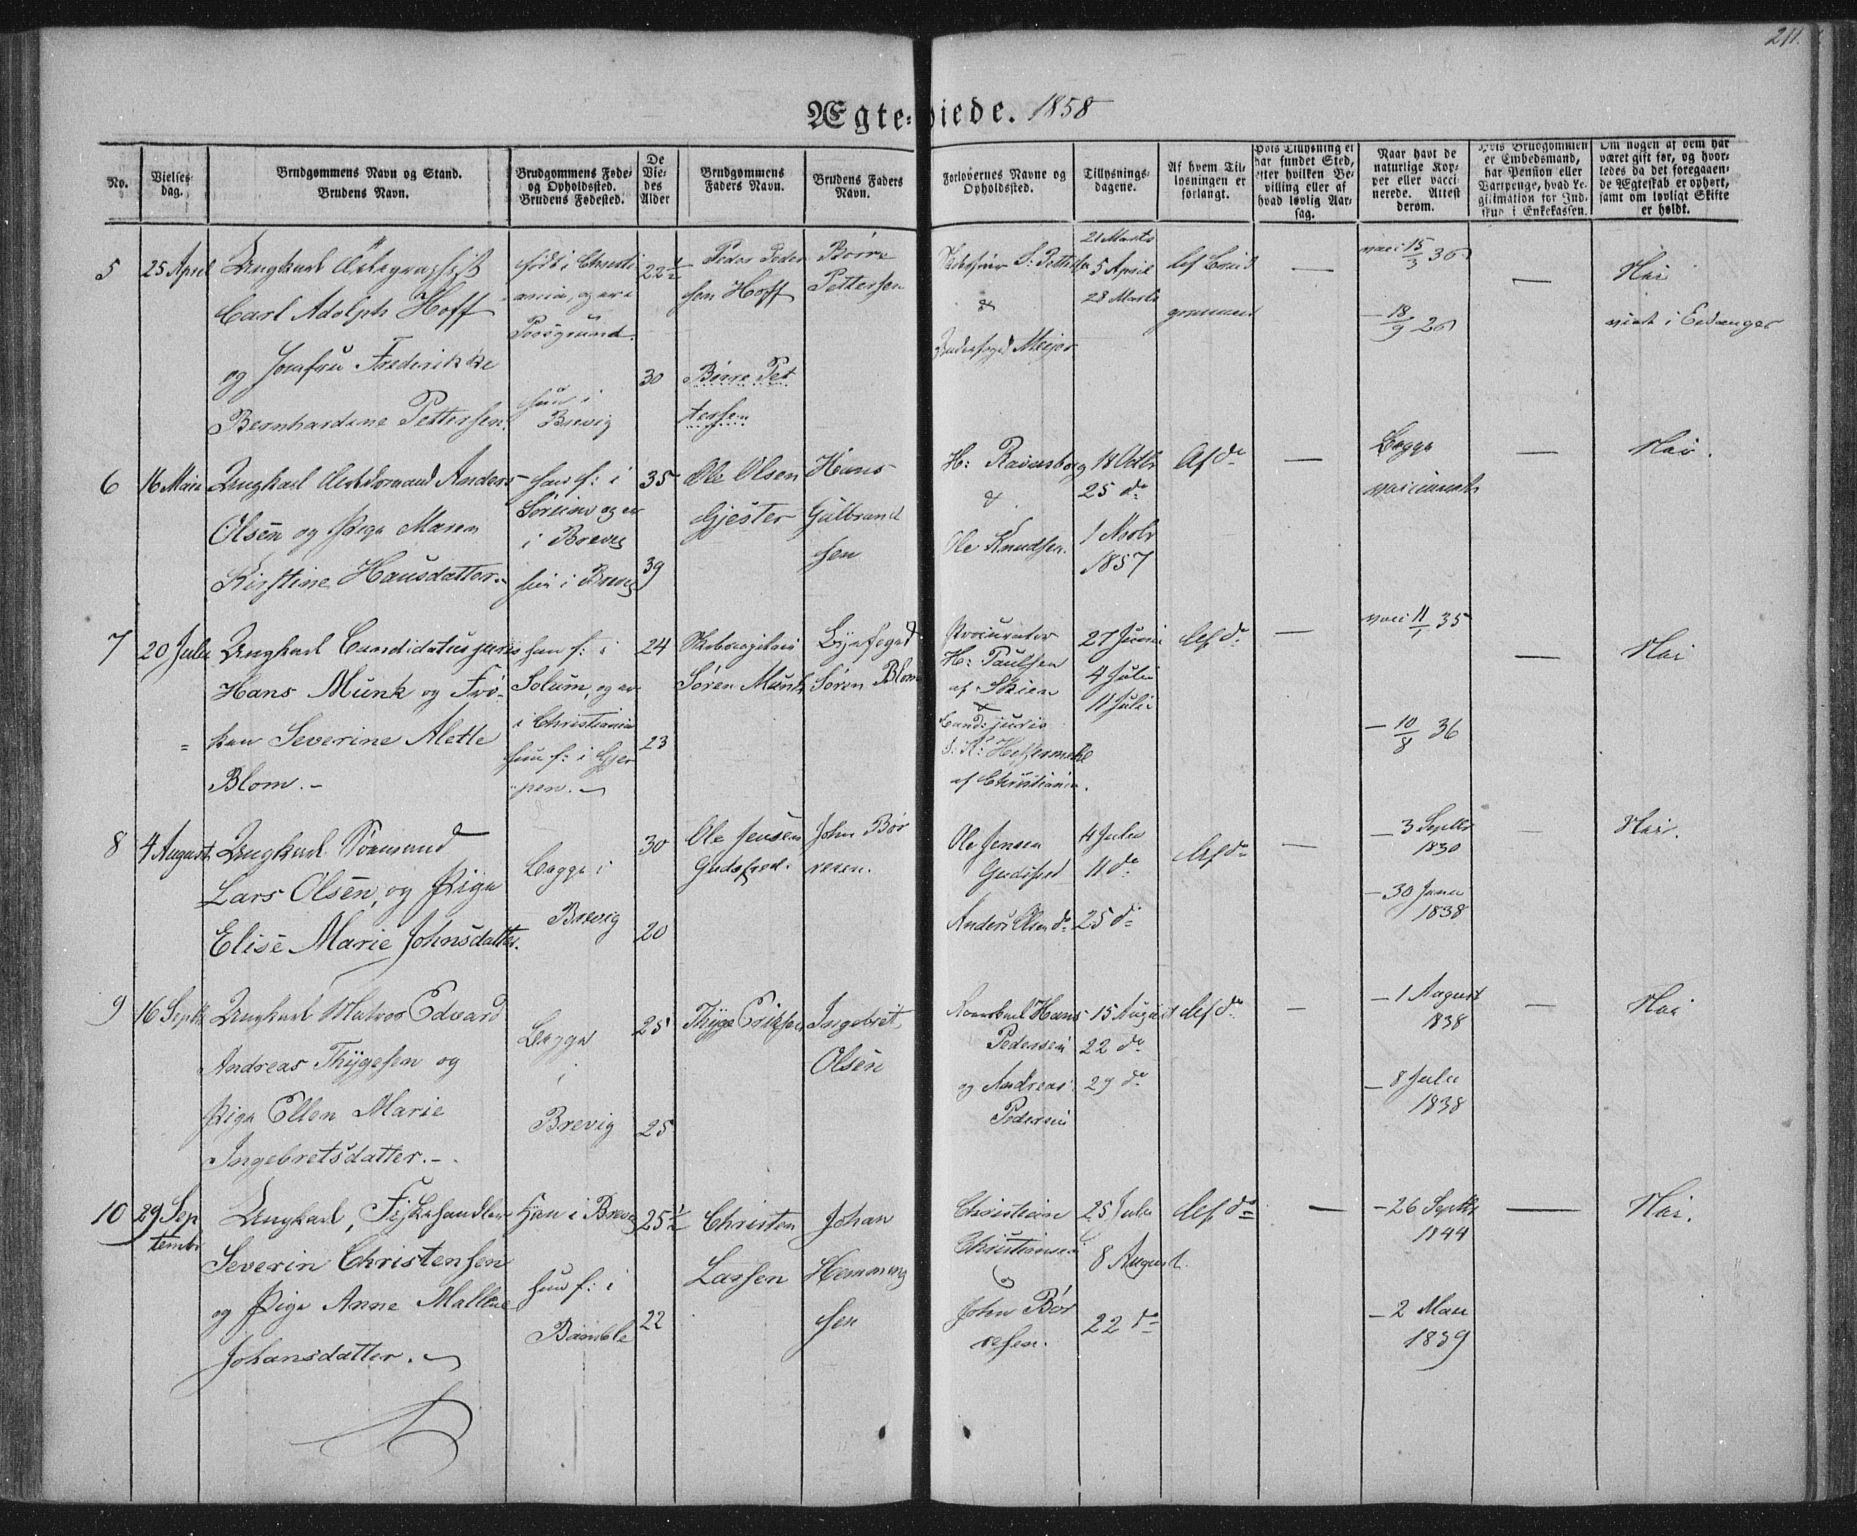 211.
Ægte-viede. 1858
No.
Vielses-
dag.
Brudgommens Navn og Stand.
Brudens Navn.
Brudgommens Føde-
og Opholdssted.
Brudens Fødested.
De
Vie-
des
Alder
Brudgommens
Faders Navn.
Brudens Faders
Navn.
Forlovernes Navne og
Opholdssted.
Tillysnings-
dagene.
Af hvem Til-
lysningen er
forlangt.
Hvis Tillysning ei
har fundet Sted,
efter hvilken Be-
villing eller af
hvad lovlig Aar-
sag.
Naar havt de
naturlige Kop-
per eller vacci-
nerede. Attest
derom.
Hvis Brudgommen
er Embedsmand,
har Pension eller
Vartpenge, hvad Le-
gitimation for Ind-
skud i Enkekassen.
Om nogen af dem har
været gift før, og hvor-
ledes da det foregaaen-
de Ægteskab er ophørt,
samt om lovligt Skifte
er holdt.
5
25 April
Ungkarl
Carl Adolph Hoff
og Jomfru Frederikke
Bernhardine Pettersen.
født i Christi
ania, og er i
Porsgrund.
hun i
Brevig
22½
30
Peder Peder
sen Hoff
Børre Pet
tersen
Børre
Pettersen
S. Pettersen
&
Meijer
21 Marts
5 April
28 Marts
Af
vacc 15/3 36
— 18/9 26
—
—
Nei
viet i Eidanger
6
16 Mai
Ungkarl Anders
Olsen og Pige Maren
Kirstine Hansdatter.
han f: i
og er
i Brevig
hun i Brevig
35
39
Ole Olsen
Gjester
Hans
Gulbrand
sen
H: Ravensborg
&
Ole Knudsen.
18 Octbr
25 do
1 Novbr
1857
Af do
—
Begge
vaccinerede
—
Nei.
7
20 Juli
Ungkarl Candidatus juris
Hans Munk og Frø-
ken Severine Alette
Blom.
han f: i
Solum, og er
i Christiania
hun f: i Gjer
pen.
24
23
Søren Munk
Søren Blom
Procurator
H: Paulsen
af Skien
&
Cand: juris
af Christiania.
27 Juni
4 Juli
11 Juli
Af do
—
vacc 11/1 35
— 10/8 36
—
Nei
8
4 August
Ungkarl Sømand
Lars Olsen, og Pige
Elise Marie Johnsdatter.
Begge i
Brevig
30
20
Ole Jensen
John Bør
resen.
Ole Jensen
Anders Olsen do
4 Juli
11 do
25 do
Af do
—
— 3 Septbr
1830
— 30 Janu
1838
—
Nei.
9
16 Septbr
Ungkarl Matros Edvard
Andreas Thygesen og
Pige Ellen Marie
Ingebretsdatter.
Begge
i
Brevig
25
25
Thyge Eriksen
Ingebret
Olsen
Hans
Pedersen
og Andreas
Pedersen
15 August
22 do
29 do
Af do
—
— 1 August
1838
— 8 Juli
1838
—
Nei
10
29 Sep
tembr
Ungkarl, Fiskehandler
Severin Christensen
og Pige Anne Mallene
Johansdatter.
Han i Brevig
hun f: i
Bamble
25½
22
Christen
Larsen
Johan
Hemming
sen
Christian
Christiansen
&
John Bør
resen.
25 Juli
8 August
22 do
Af do
—
— 26 Septbr
1844
— 2 Mai
1839
—
Nei.